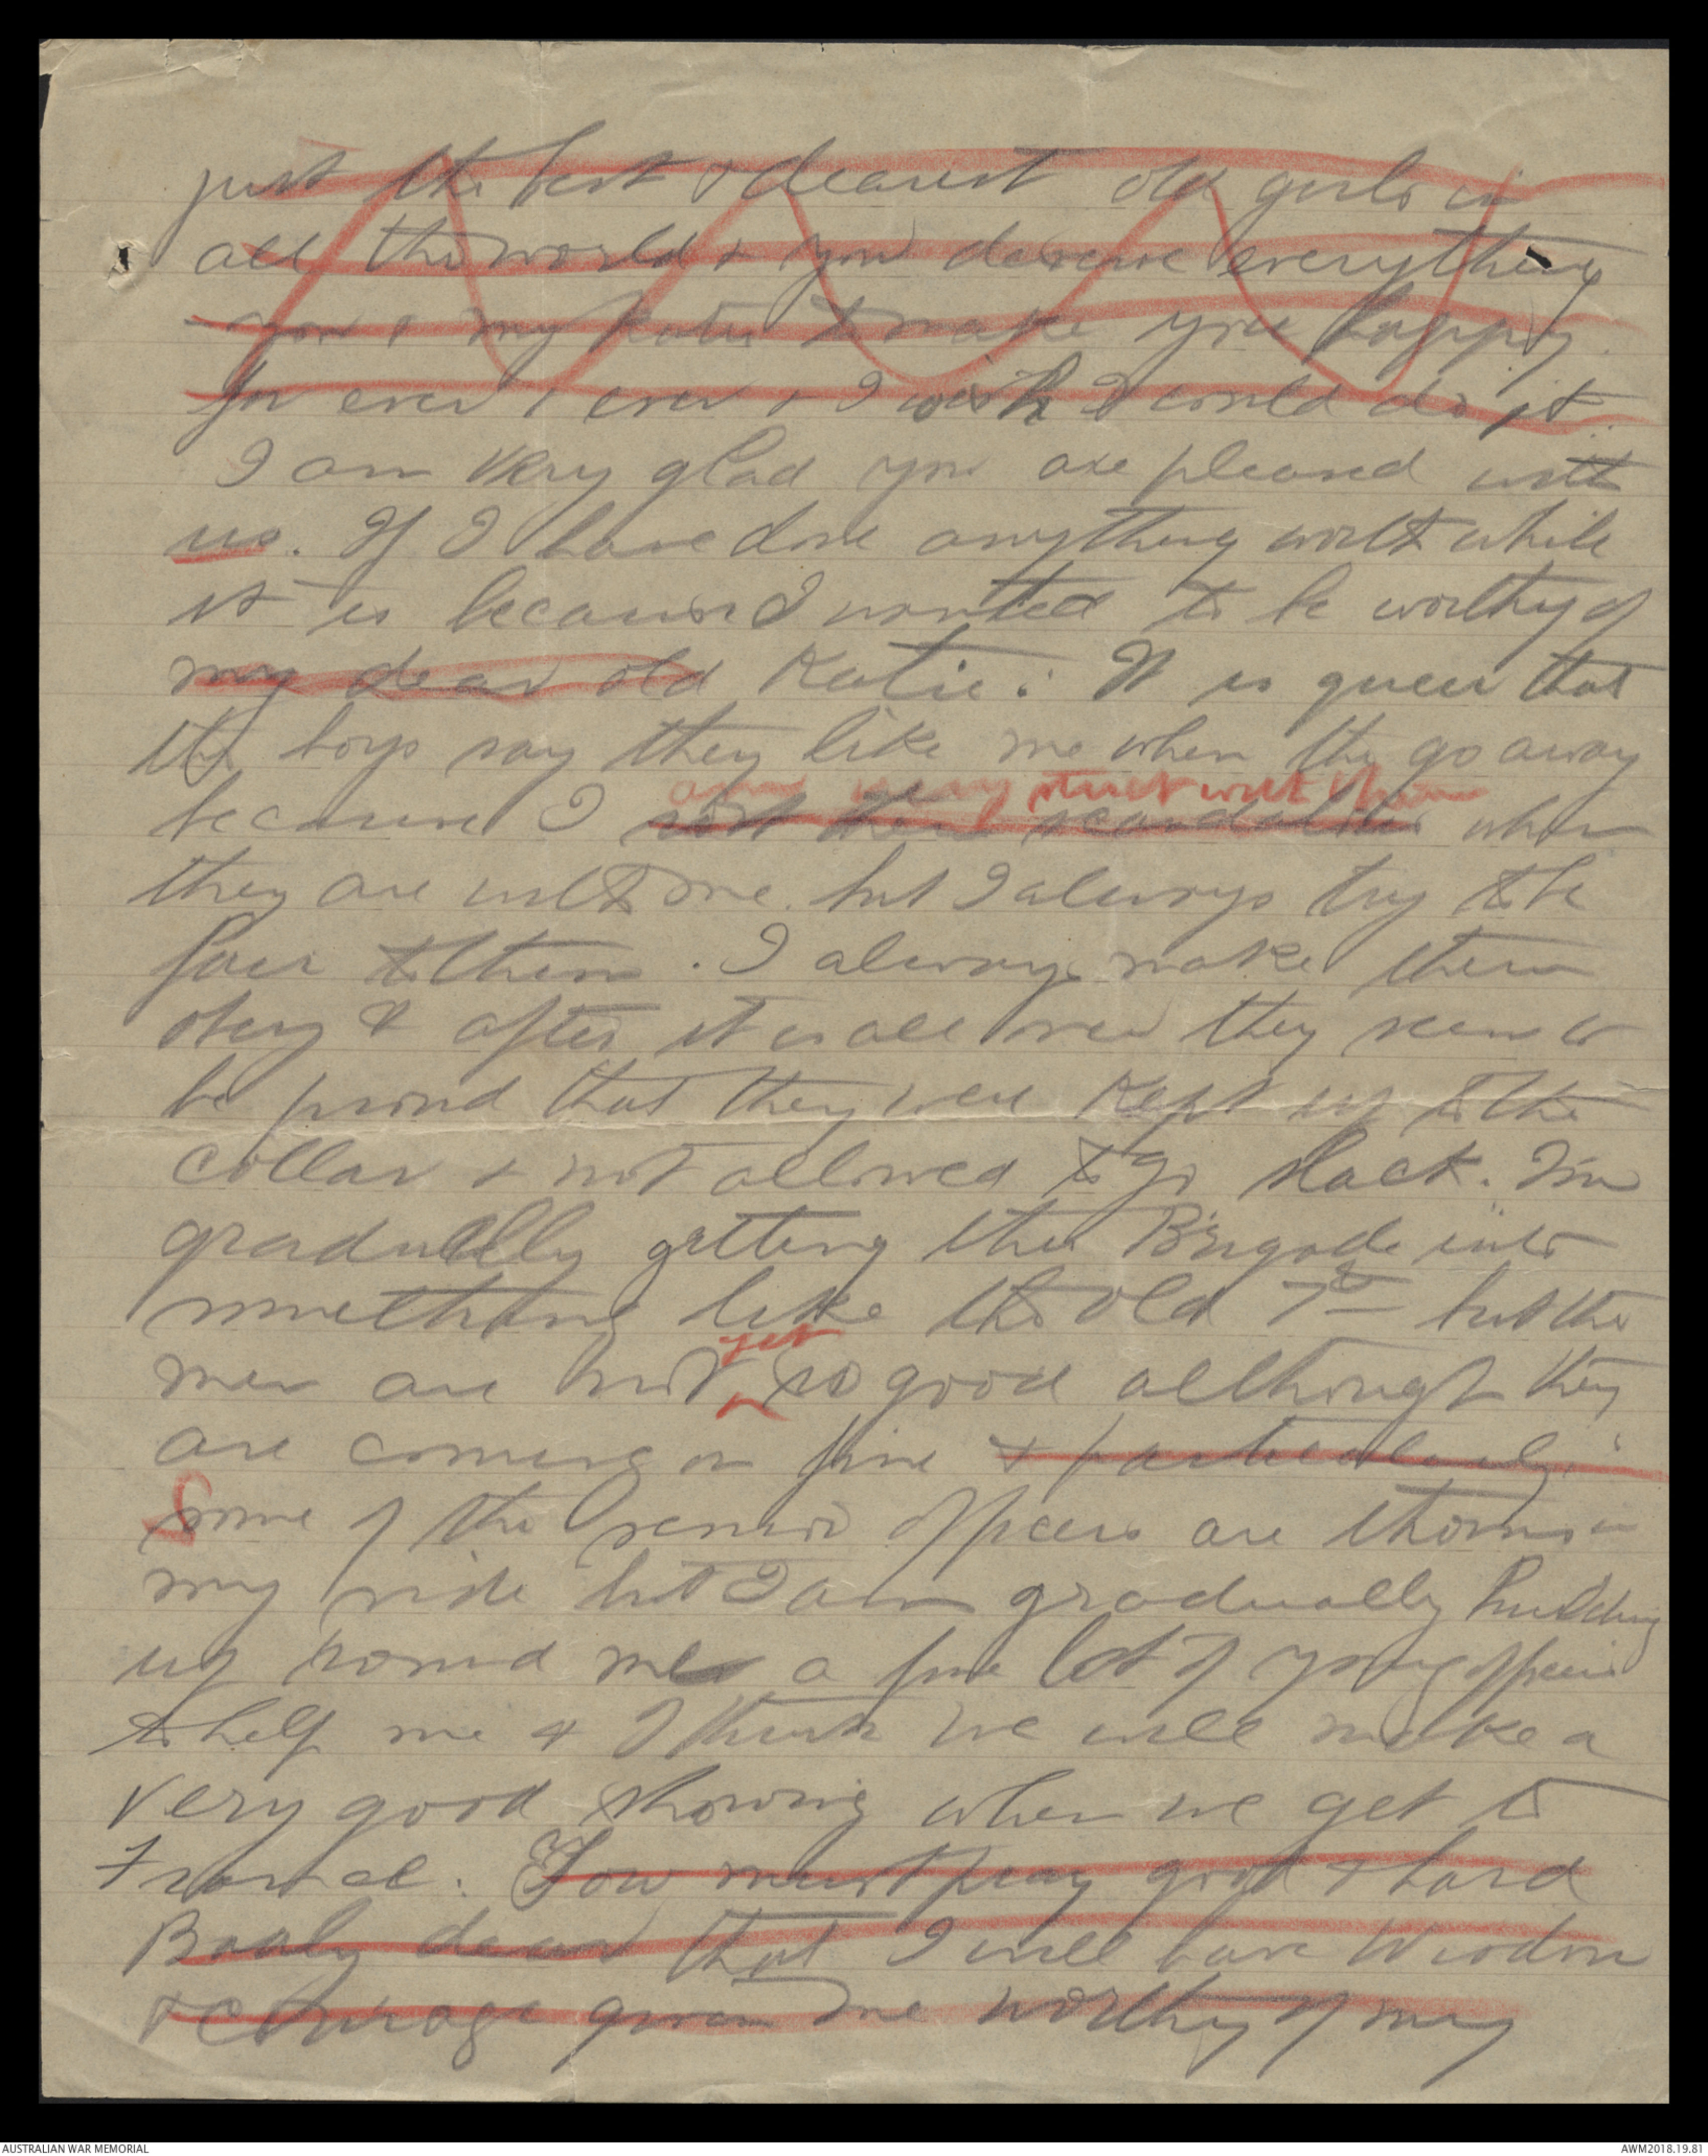 just the best & dearest old girls in
all the world & you deserve everything
you & my Katie to make you happy
for ever & ever & I wish I could do it.
I am very glad you are pleased with
us. If I have done anything worth while
it is because I wanted to be worthy of
my dear old Katie. It is queer that
the boys say they like me when the go away
am very strict with them
because I sort them scandalous when
they are with me. but I always try to be
fair to them. I always make them
obey & after it is all over they seem to
be proud that they were kept up to the
collar & not allowed to go slack. I'm
gradually getting this Brigade into
something like the old 7th but the
yet
men are not so good although they
are coming on fine & particularly
Some of the senior officers are thorns in
my side but I am gradually building
up round me a fine lot of young officers
to help me & I think we will make a
very good showing when we get to
France. You must pray good & hard
Booly dear that I will have Wisdom
& courage given me worthy of my
AUSTRALIAN WAR MEMORIAL
AWM2018.19.81